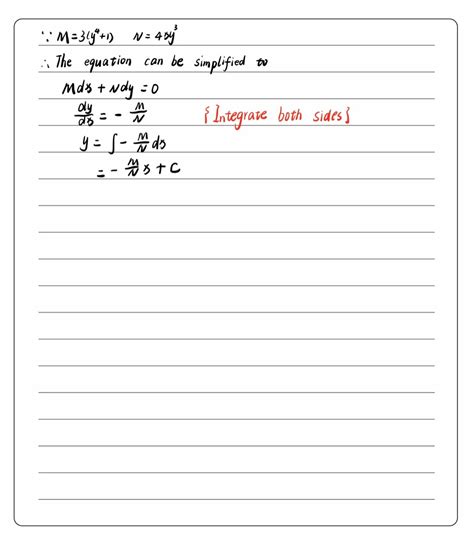 ∵ M=3(y⁴+1) N=4xy³
∴ The equation can be simplified to
Mdx + Ndy = 0
dy/dx = - M/N {Integrate both sides}
y = ∫ - M/N dx
= - M/N x + C